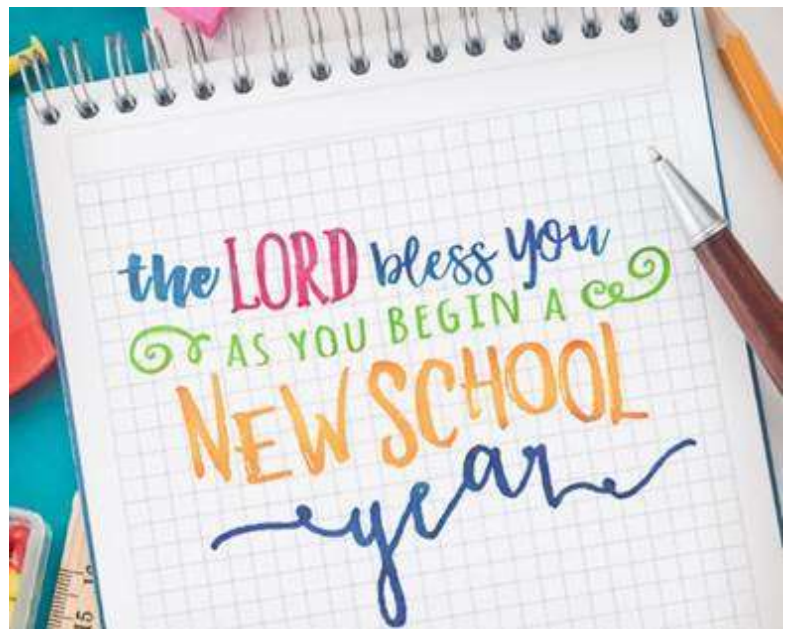 the LORD bless you
AS YOU BEGIN A
NEW SCHOOL
year
15